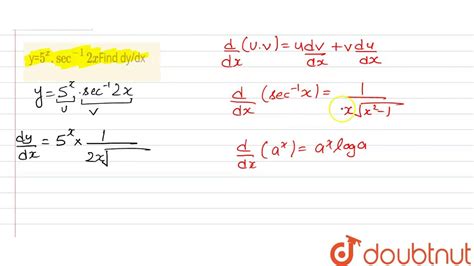 y=5ˣ. sec⁻¹ 2xFind dy/dx
y = 5ˣ . sec⁻¹2x
u v
dy/dx = 5ˣ × 1/2x√
d/dx (u.v) = u dv/dx + v du/dx
d/dx (sec⁻¹x) = 1/x√x²-1
d/dx (aˣ) = aˣ log a
doubtnut